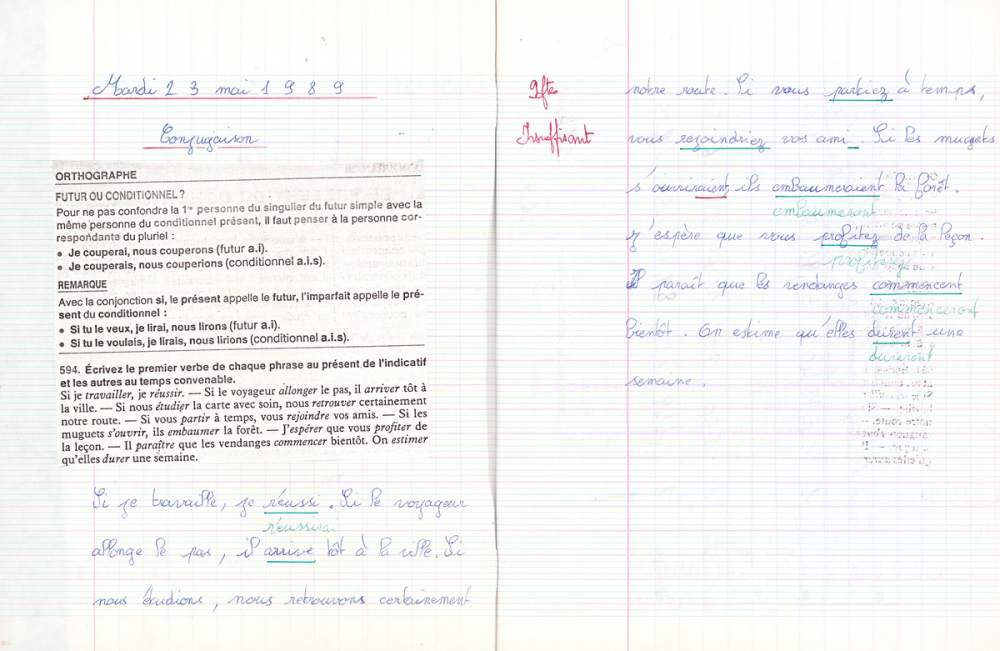 Mardi 23 mai 1989
Conjugaison
ORTHOGRAPHE
FUTUR OU CONDITIONNEL ?
Pour ne pas confondre la 1re personne du singulier du futur simple avec la
même personne du conditionnel présent, il faut penser à la personne cor-
respondante du pluriel :
• Je couperai, nous couperons (futur a.i).
• Je couperais, nous couperions (conditionnel a.i.s).
REMARQUE
Avec la conjonction si, le présent appelle le futur, l'imparfait appelle le pré-
sent du conditionnel :
• Si tu le veux, je lirai, nous lirons (futur a.i).
• Si tu le voulais, je lirais, nous lirions (conditionnel a.i.s).
594. Écrivez le premier verbe de chaque phrase au présent de l'indicatif
et les autres au temps convenable.
Si je travailler, je réussir. — Si le voyageur allonger le pas, il arriver tôt à
la ville. — Si nous étudier la carte avec soin, nous retrouver certainement
notre route. — Si vous partir à temps, vous rejoindre vos amis. — Si les
muguets s'ouvrir, ils embaumer la forêt. — J'espérer que vous profiter de
la leçon. — Il paraître que les vendanges commencer bientôt. On estimer
qu'elles durer une semaine.
Si je travaille, je réussi. Si le voyageur
réussirai
allonge le pas, il arrive tôt à la ville. Si
nous étudions, nous retrouvons certainement
Insuffisant
notre route. Si vous partiez à temps,
vous rejoindriez vos ami. Si les muguets
s'ouvriraient, ils embaumeraient la forêt.
embaumeront
j'espère que vous profitez de la leçon.
profiterez
Il paraît que les vendanges commencent
commenceront
bientôt. On estime qu'elles durent une
dureront
semaine.